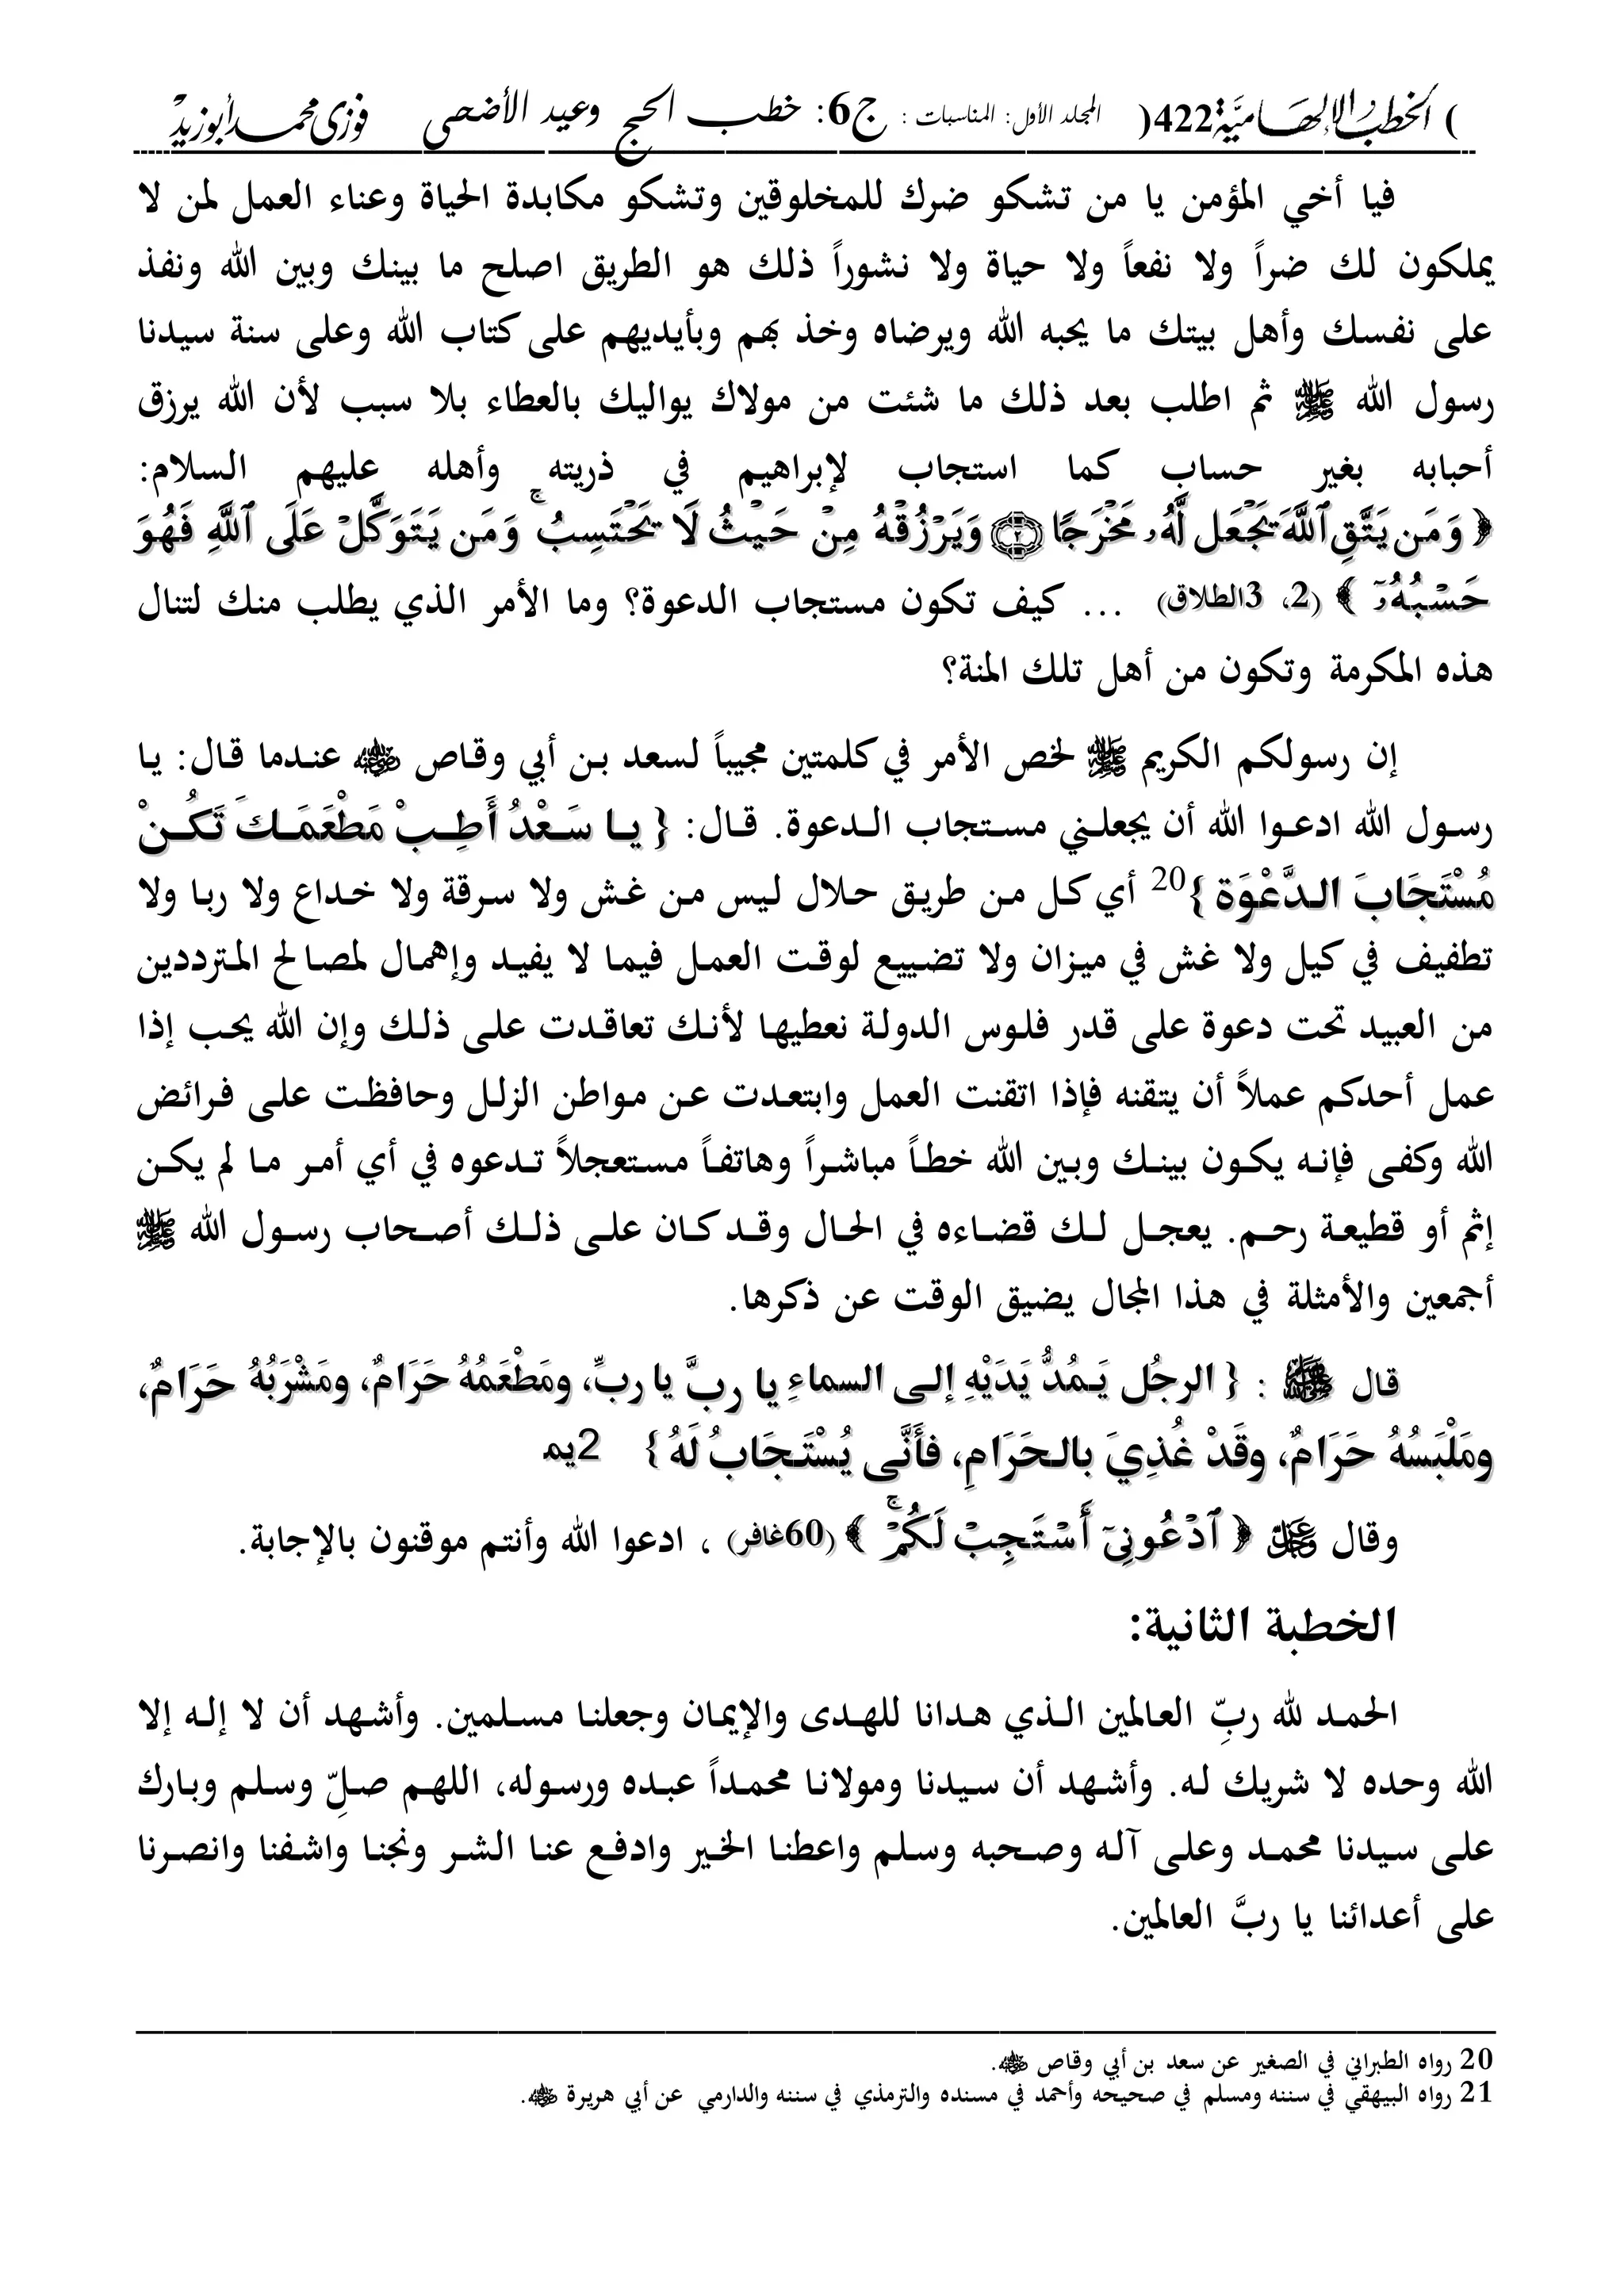 ( الخطب الإلهامية 422) المجلد الأول: المناسبات : ج6: خطب الحج وعيد الأضحى فوزى محمد أبوزيد
فيا أخي المؤمن يا من تشكو ضرك للمخلوقين وتشكو مكابدة الحياة وعناء العمل لمن لا
يملكون لك ضراً ولا نفعاً ولا حياة ولا نشوراً ذلك هو الطريق اصلح ما بينك وبين الله ونفذ
على نفسك وأهل بيتك ما يحبه الله ويرضاه وخذ بهم وبأيديهم على كتاب الله وعلى سنة سيدنا
رسول الله ﷺ ثم اطلب بعد ذلك ما شئت من مولاك يواليك بالعطاء بلا سبب لأن الله يرزق
أحبابه بغير حساب كما استجاب لإبراهيم في ذريته وأهله عليهم السلام:
﴿ وَمَن يَتَّقِ ٱللَّهَ يَجْعَل لَّهُۥ مَخْرَجًا ۝٢ وَيَرْزُقْهُ مِنْ حَيْثُ لَا يَحْتَسِبُ ۚ وَمَن يَتَوَكَّلْ عَلَى ٱللَّهِ فَهُوَ
حَسْبُهُۥٓ ﴾ (2، 3الطلاق) ... كيف تكون مستجاب الدعوة؟ وما الأمر الذي يطلب منك لتنال
هذه المكرمة وتكون من أهل تلك المنة؟
إن رسولكم الكريم ﷺ لخص الأمر في كلمتين مجيباً لسعد بن أبي وقاص رضي الله عنه عندما قال: يا
رسول الله ادعوا الله أن يجعلني مستجاب الدعوة. قال: { يا سَعْدُ أَطِبْ مَطْعَمَكَ تَكُنْ
مُسْتَجَابَ الدَّعْوَة }20 أي كل من طريق حلال ليس من غش ولا سرقة ولا خداع ولا ربا ولا
تطفيف في كيل ولا غش في ميزان ولا تضييع لوقت العمل فيما لا يفيد وإهمال لمصالح المترددين
من العبيد تحت دعوة على قدر فلوس الدولة نعطيها لأنك تعاقدت على ذلك وإن الله يحب إذا
عمل أحدكم عملاً أن يتقنه فإذا اتقنت العمل وابتعدت عن مواطن الزلل وحافظت على فرائض
الله وكفى فإنه يكون بينك وبين الله خطاً مباشراً وهاتفاً مستعجلاً تدعوه في أي أمر ما لم يكن
إثم أو قطيعة رحم. يعجل لك قضاءه في الحال وقد كان على ذلك أصحاب رسول الله ﷺ
أجمعين والأمثلة في هذا المجال يضيق الوقت عن ذكرها.
قال ﷺ : { الرجُل يَـمُدُّ يَدَيْهِ إلى السماءِ يا ربَّ يا ربِّ، ومَطْعَمُهُ حَرَامٌ، ومَشْرَبُهُ حَرَامٌ،
ومَلْبَسُهُ حَرَامٌ، وقَدْ غُذِيَ بالـحَرَامِ، فأَنَّى يُسْتَجَابُ لَهُ } 2يم
وقال عز وجل ﴿ ٱدْعُونِىٓ أَسْتَجِبْ لَكُمْ ۚ ﴾ (60غافر) ، ادعوا الله وأنتم موقنون بالإجابة.
الخطبة الثانية:
الحمد لله ربِّ العالمين الذي هدانا للهدى والإيمان وجعلنا مسلمين. وأشهد أن لا إله إلا
الله وحده لا شريك له. وأشهد أن سيدنا ومولانا محمداً عبده ورسوله، اللهم صلِّ وسلم وبارك
على سيدنا محمد وعلى آله وصحبه وسلم واعطنا الخير وادفع عنا الشر ونجنا واشفنا وانصرنا
على أعدائنا يا ربَّ العالمين.
20 رواه الطبراني في الصغير عن سعد بن أبي وقاص رضي الله عنه.
21 رواه البيهقي في سننه ومسلم في صحيحه وأحمد في مسنده والترمذي في سننه والدارمي عن أبي هريرة رضي الله عنه.